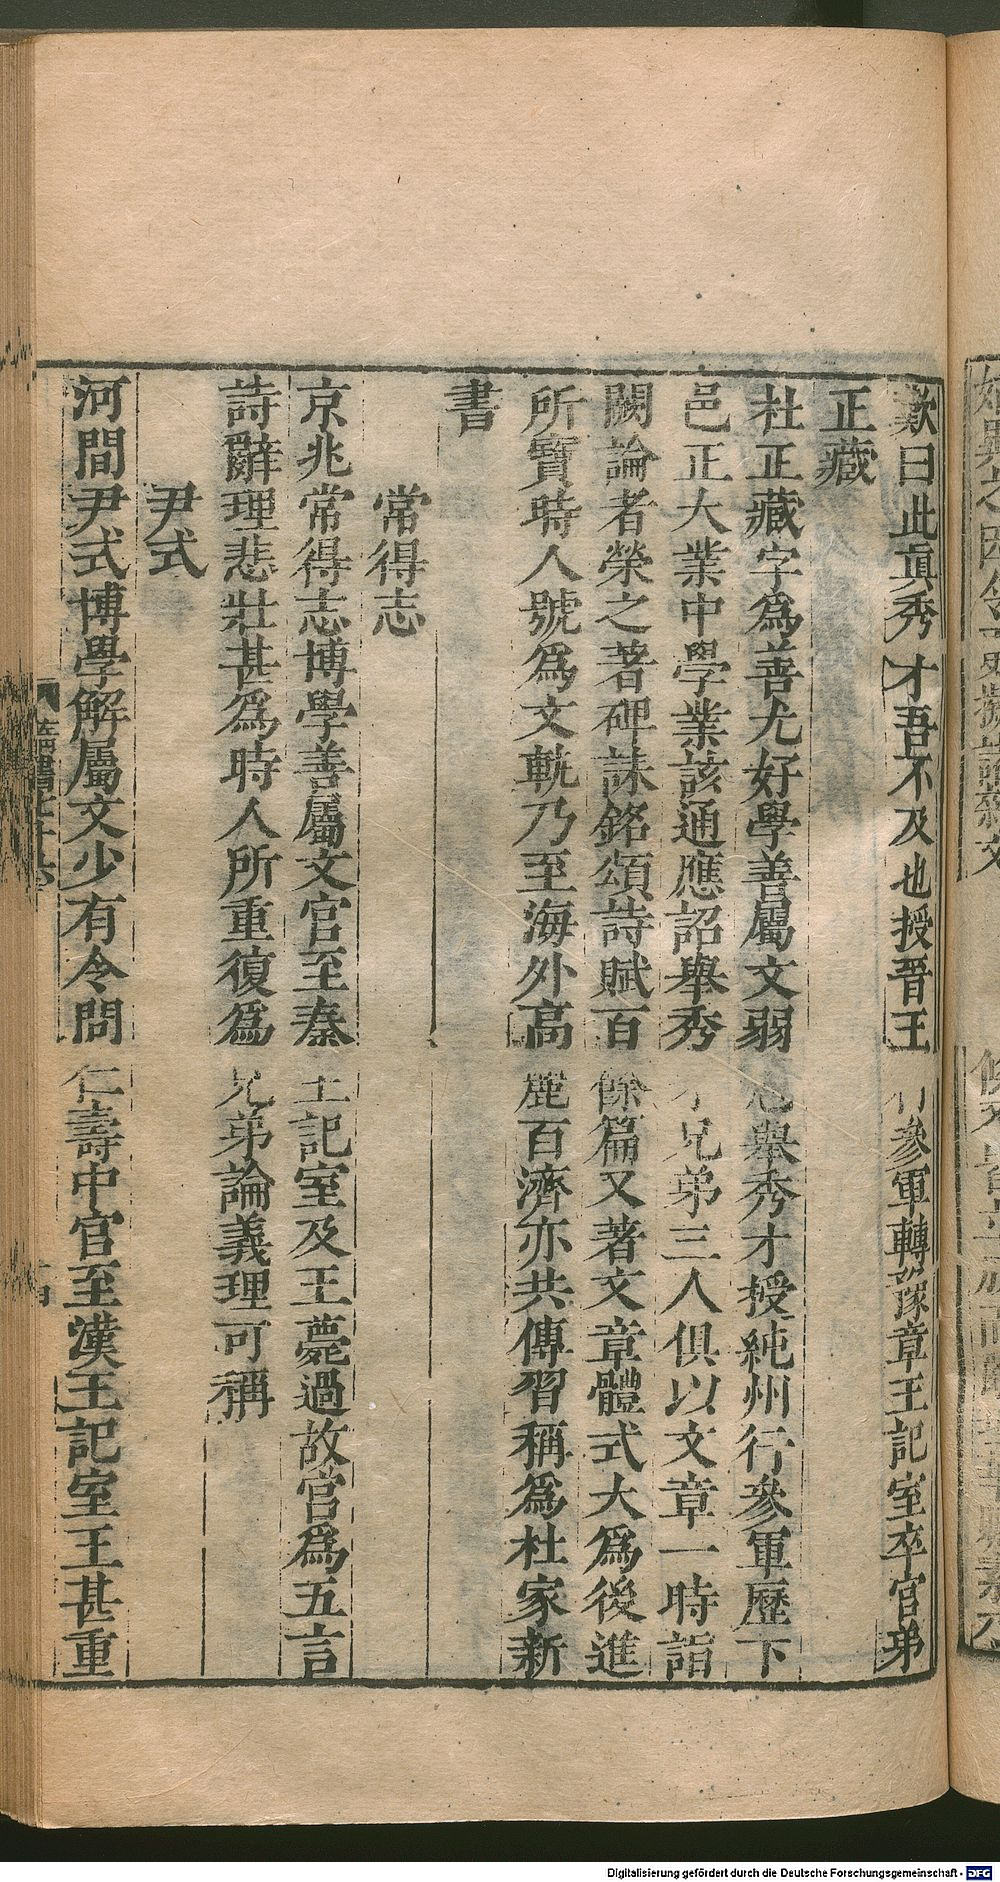 歎曰此真秀才吾不及也授晉王行參軍轉豫章王記室卒官弟
正藏
杜正藏字為善尤好學善屬文弱冠舉秀才授純州行參軍歷下
邑正大業中學業該通應詔舉秀才兄弟三人俱以文章一時詣
闕論者榮之著碑誄銘頌詩賦百餘篇又著文章體式大為後進
所寶時人號為文軌乃至海外高麗百濟亦共傳習稱為杜家新
書
常得志
京兆常得志博學善屬文官至秦王記室及王薨過故宮為五言
詩辭理悲壯甚為時人所重復為兄弟論義理可稱
尹式
河間尹式博學解屬文少有令問仁壽中官至漢王記室王甚重
Digitalisierung gefördert durch die Deutsche Forschungsgemeinschaft - DFG